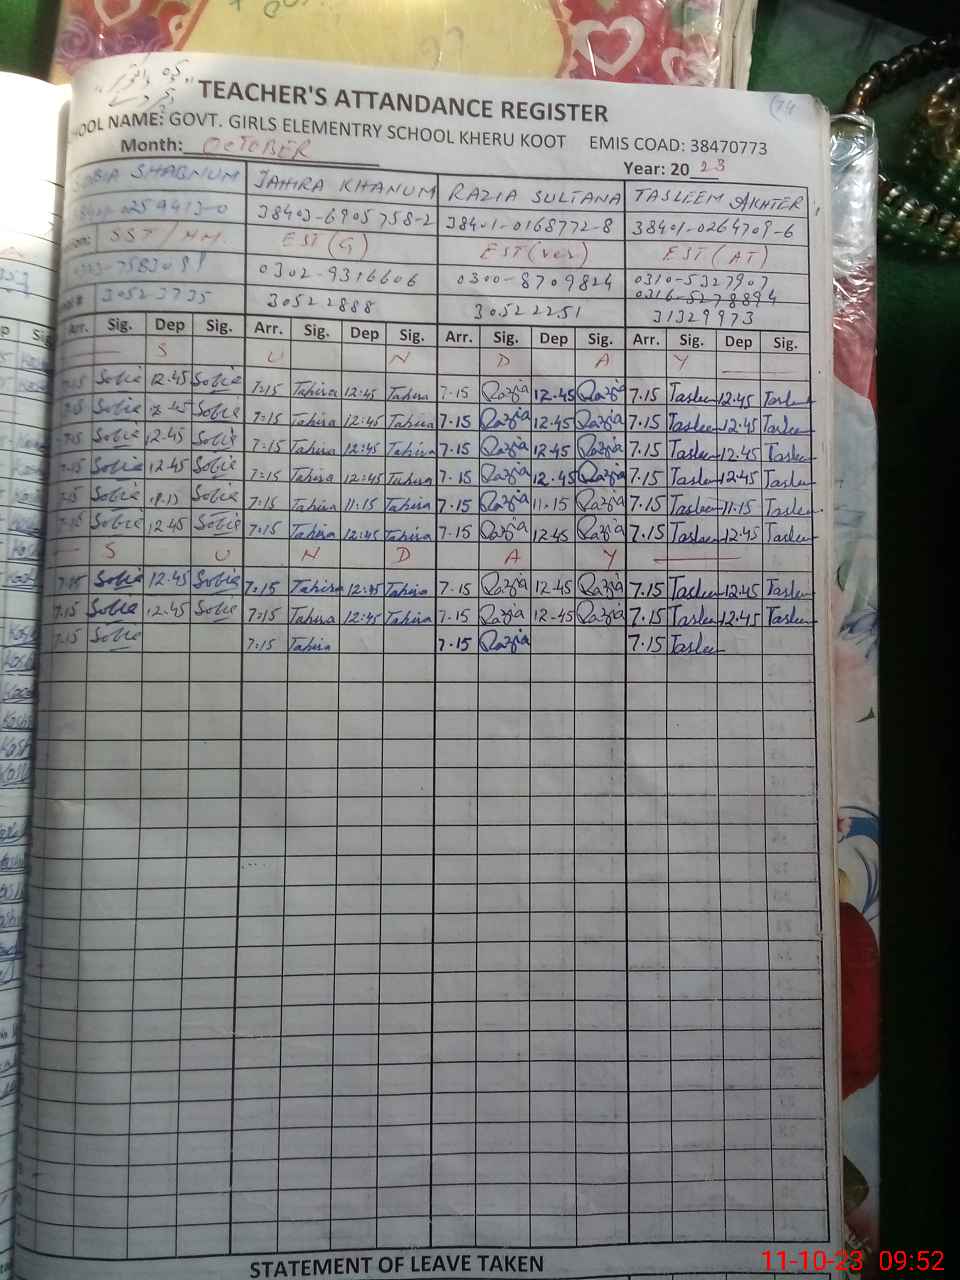 TEACHER'S ATTANDANCE REGISTER
SCHOOL NAME: GOVT. GIRLS ELEMENTRY SCHOOL KHERU KOOT EMIS COAD: 38470773
Month: OCTOBER Year: 20 23
SOBIA SHABNUM TAHIRA KHANUM RAZIA SULTANA TASLEEM AKHTER
38403-6905758-2 38401-0168772-8 38401-0264709-6
SST/HM. EST(G) EST(ver) EST(AT)
0302-9316606 0300-8709824 0310-5327907
0316-5278894
30523735 30522888 30522251 31329973
Arr. Sig. Dep Sig. Arr. Sig. Dep Sig. Arr. Sig. Dep Sig. Arr. Sig. Dep Sig.
S U N D A Y
7:15 Sobia 12.45 Sobia 7:15 Tahira 12:45 Tahira 7.15 Razia 12.45 Razia 7.15 Tasleem 12.45 Tasleem
7:15 Sobia 12.45 Sobia 7:15 Tahira 12:45 Tahira 7.15 Razia 12.45 Razia 7.15 Tasleem 12.45 Tasleem
7:15 Sobia 12.45 Sobia 7:15 Tahira 12:45 Tahira 7.15 Razia 12.45 Razia 7.15 Tasleem 12.45 Tasleem
7:15 Sobia 12.45 Sobia 7:15 Tahira 12:45 Tahira 7.15 Razia 12.45 Razia 7.15 Tasleem 12.45 Tasleem
7:15 Sobia Sobia 7:15 Tahira 11:15 Tahira 7.15 Razia 11.15 Razia 7.15 Tasleem 11.15 Tasleem
7:15 Sobia 12.45 Sobia 7:15 Tahira 12:45 Tahira 7.15 Razia 12.45 Razia 7.15 Tasleem 12.45 Tasleem
S U N D A Y
7.15 Sobia 12.45 Sobia 7:15 Tahira 12:45 Tahira 7.15 Razia 12.45 Razia 7.15 Tasleem 12.45 Tasleem
7.15 Sobia 12.45 Sobia 7:15 Tahira 12:45 Tahira 7.15 Razia 12.45 Razia 7.15 Tasleem 12.45 Tasleem
7.15 Sobia 7:15 Tahira 7.15 Razia 7.15 Tasleem
STATEMENT OF LEAVE TAKEN
11-10-23 09:52